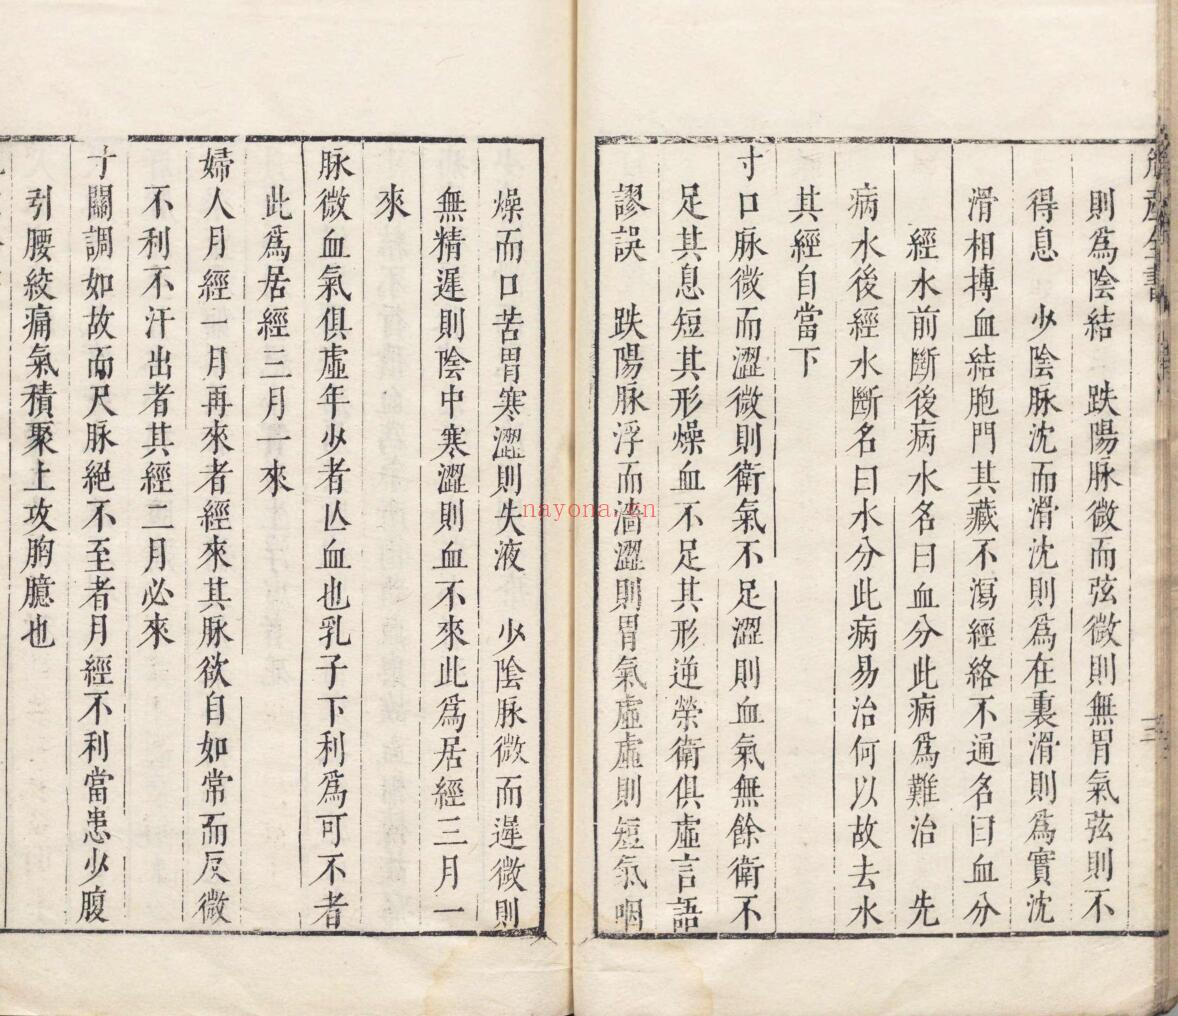 則爲陰結　趺陽脉微而弦微則無胃氣弦則不
得息　少陰脉沈而滑沈則爲在裏滑則爲實沈
滑相搏血結胞門其藏不瀉經絡不通名曰血分
經水前斷後病水名曰血分此病爲難治　先
病水後經水斷名曰水分此病易治何以故去水
其經自當下
寸口脉微而澀微則衛氣不足澀則血氣無餘衛不
足其息短其形燥血不足其形逆榮衛俱虛言語
謬誤　趺陽脉浮而濇澀則胃氣虛虛則短氣咽
燥而口苦胃寒澀則失液　少陰脉微而遲微則
無精遲則陰中寒澀則血不來此爲居經三月一
來
脉微血氣俱虛年少者亾血也乳子下利爲可不者
此爲居經三月一來
婦人月經一月再來者經來其脉欲自如常而反微
不利不汗出者其經二月必來
寸關調如故而尺脉絕不至者月經不利當患少腹
引腰絞痛氣積聚上攻胸臆也
nayona.cn